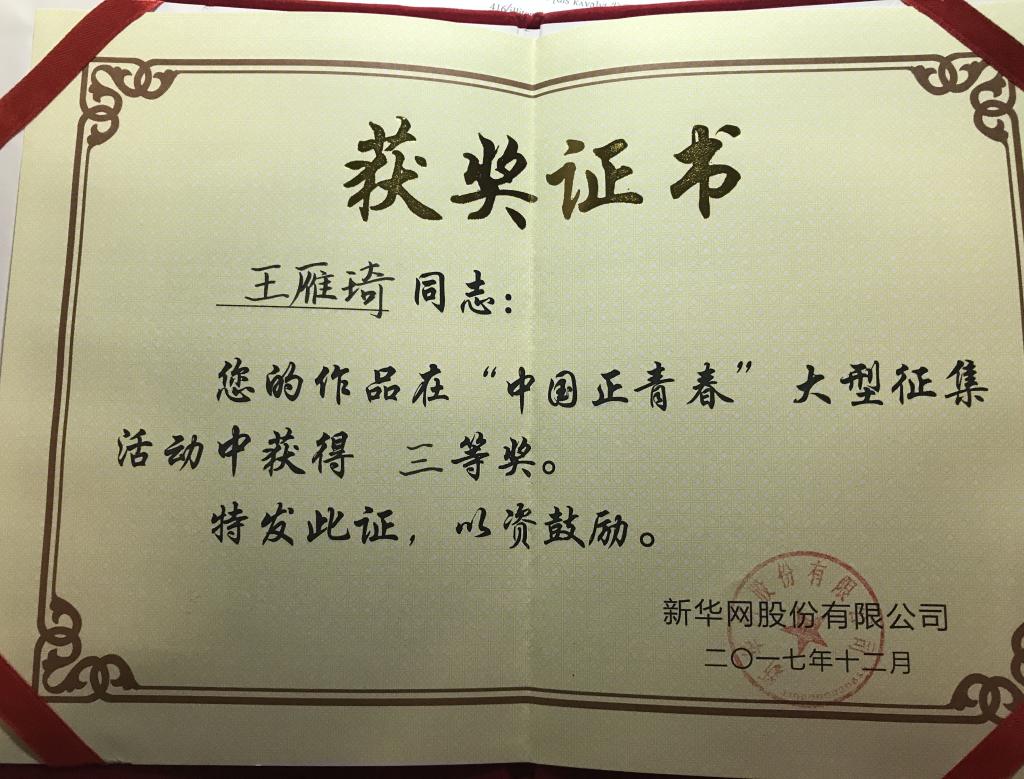 获奖证书
王雁琦 同志：
您的作品在“中国正青春”大型征集
活动中获得 三等奖。
特发此证，以资鼓励。
新华网股份有限公司
二〇一七年十二月